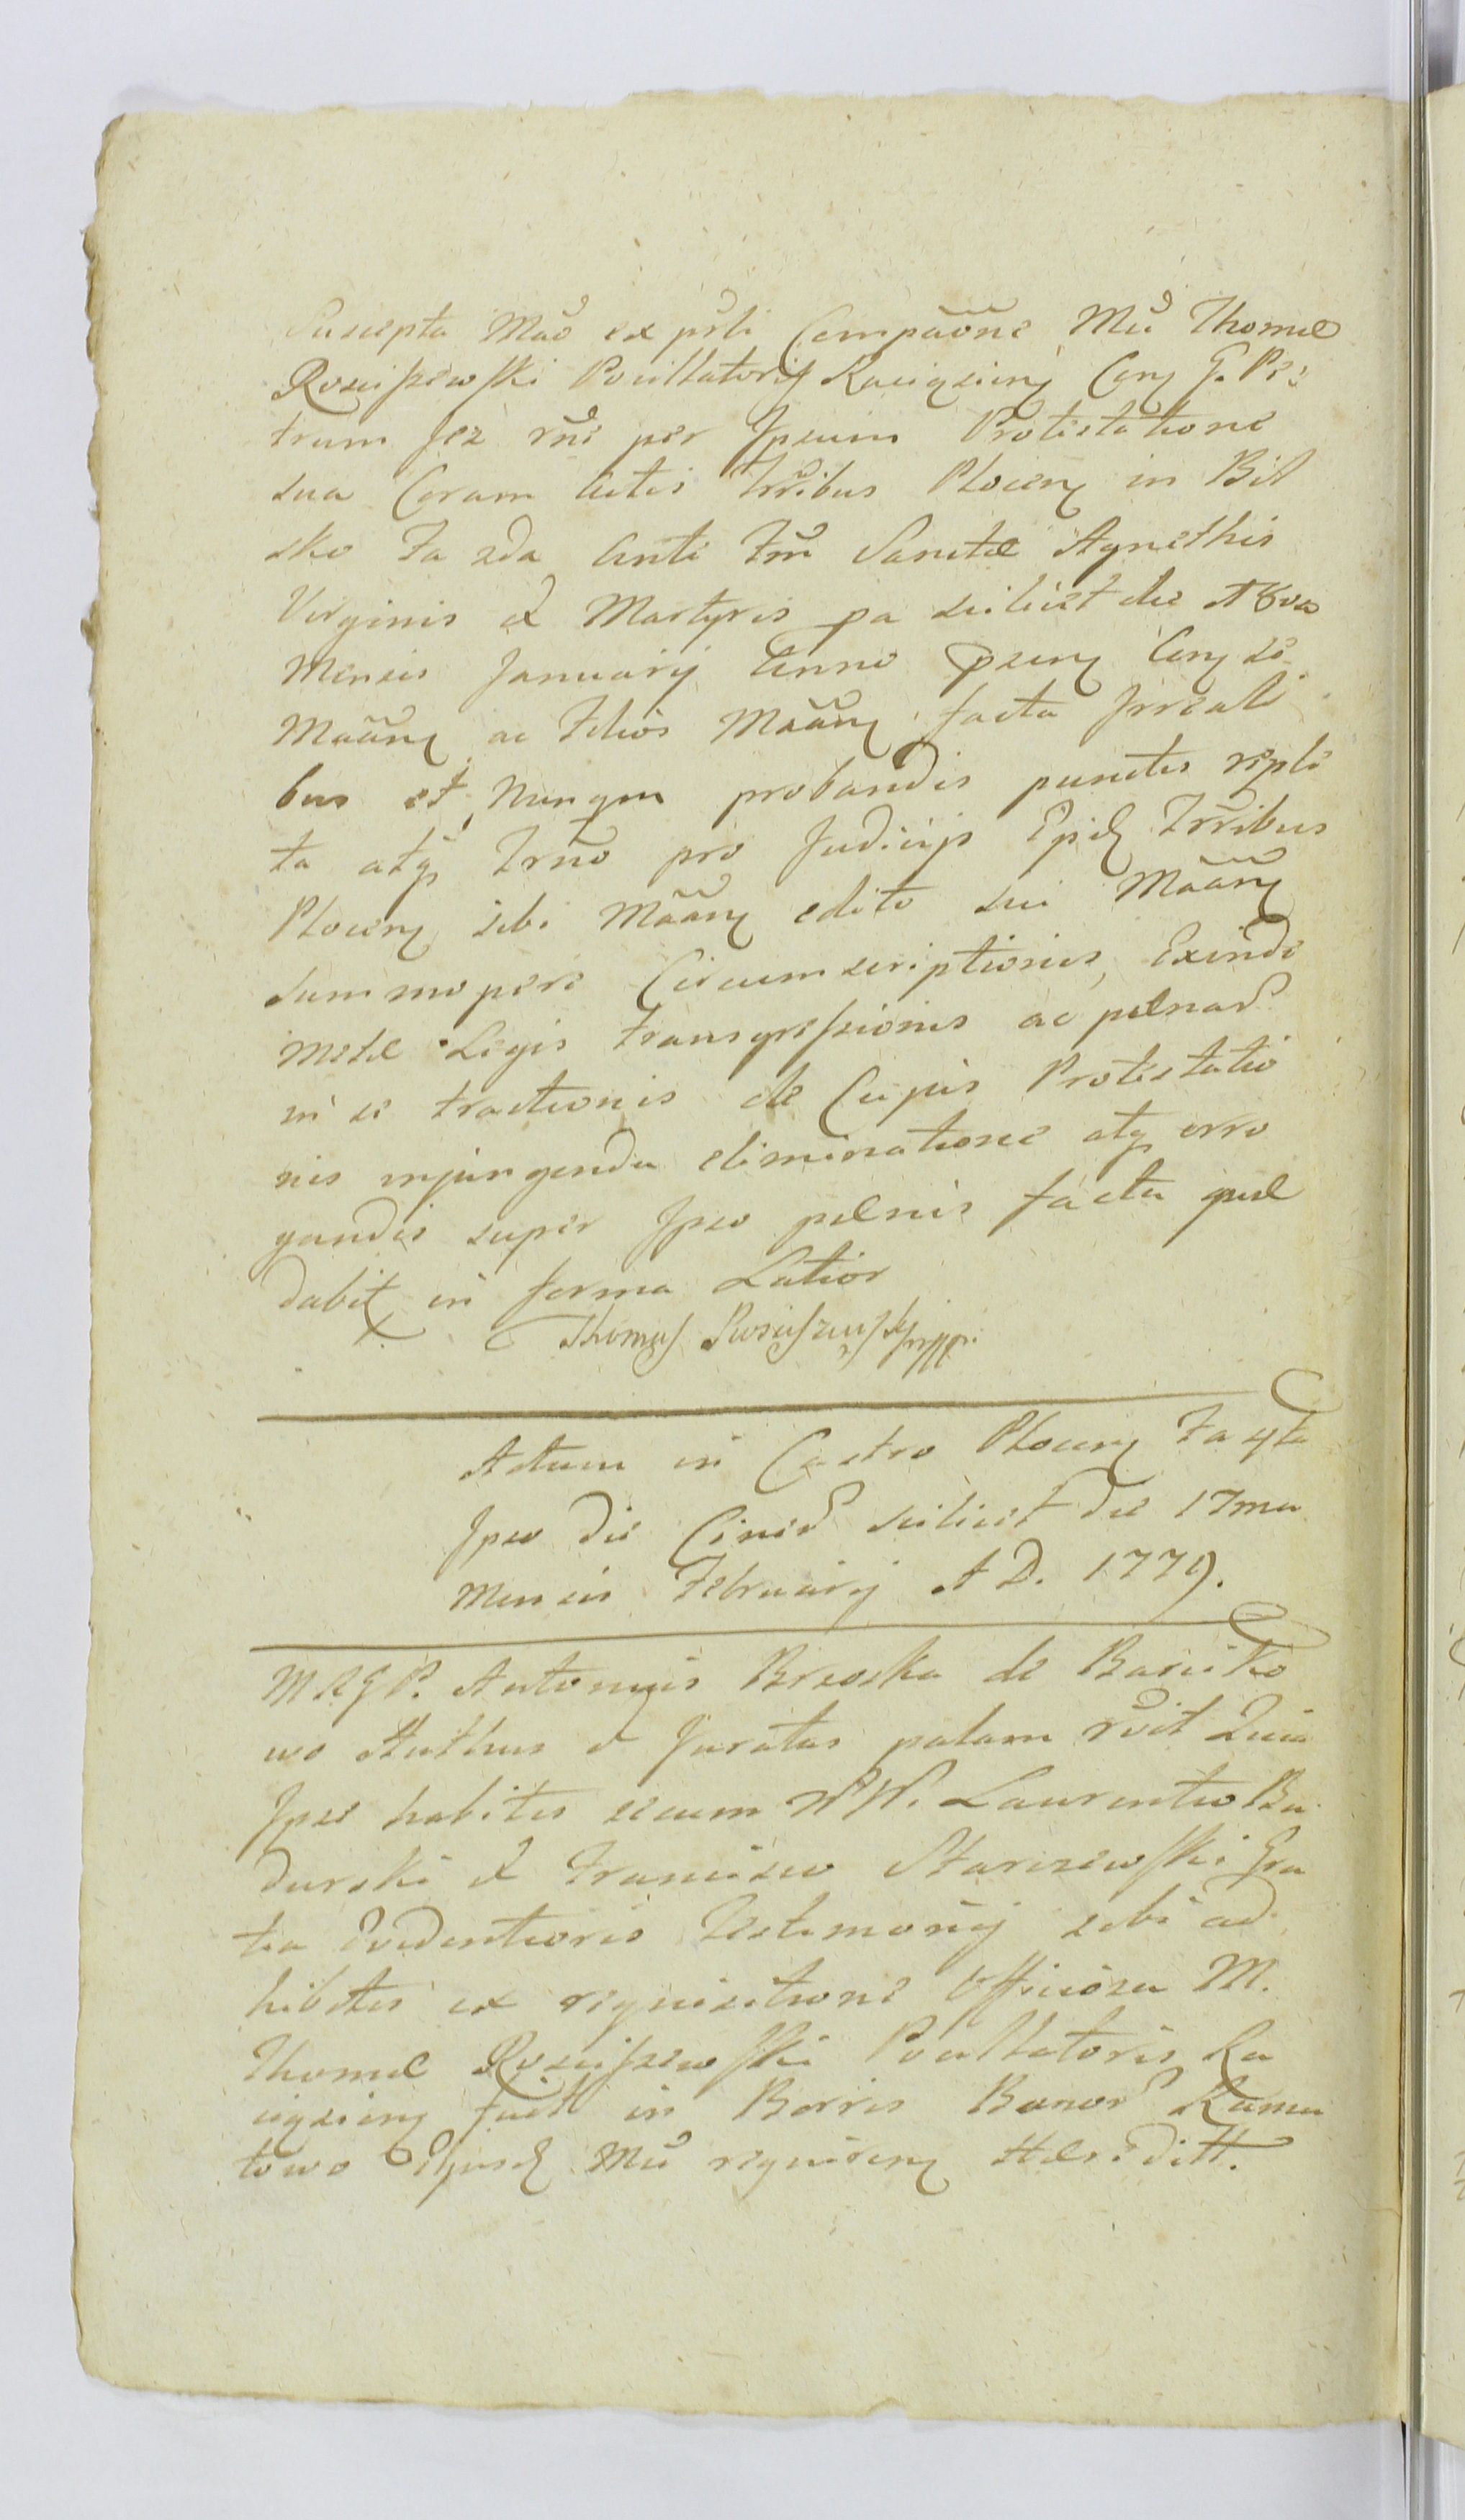 Suscepta Mão ex psñti Compãõne Mũ Thomæ
Rosciszewski Pocillatoris Raciązieng Cong G. Pe:
trum Jez rñe per Ipsum Protestatione
sua Coram Actis Trribus Ploceng in Biel
sko fa 2da Ante Fm Sanctæ Agnethis
Virginis et Martyris pa scilicet die 18va
Mensis Januarij Anno pseng Cong se
Mããng ac Filios Mããng facta Irreali
bus et Nunqm probandis punctis reple
ta atq Trno pro Judicijs Epid Trribus
Ploceng sibi Mããng edito sui Mããng
summopere Circumscriptionis, Exinde
metæ Legis transgressionis ac pænar
in se tractionis de Cujus Protestatio
nis injungenda eliminatione atq irro
gandis super Ipso pænis facta quæ
dabit in forma Latior
Thomas Rosciszewski mppr.
Actum in Castro Ploceng Fa 4ta
Ipso die Ciner scilicet die 17ma
Mensis Februarij A D. 1779.
M R G P. Antonius Brzoska de Barciko
wo Authus et Juratus palam rvit Quia
Ipse habitis secum NN. Laurentio Bu
durski et Francisco Starczewski Gra
tia Evidentioris Testimonij sibi ad
hibitis ex requisitione Officiosa M.
Thomæ Rosciszewski Pocillatoris Ra
ciązieng fuit in Bonis Bonor Ramu
towo Ejusd Mũ requireng Hæreditt.